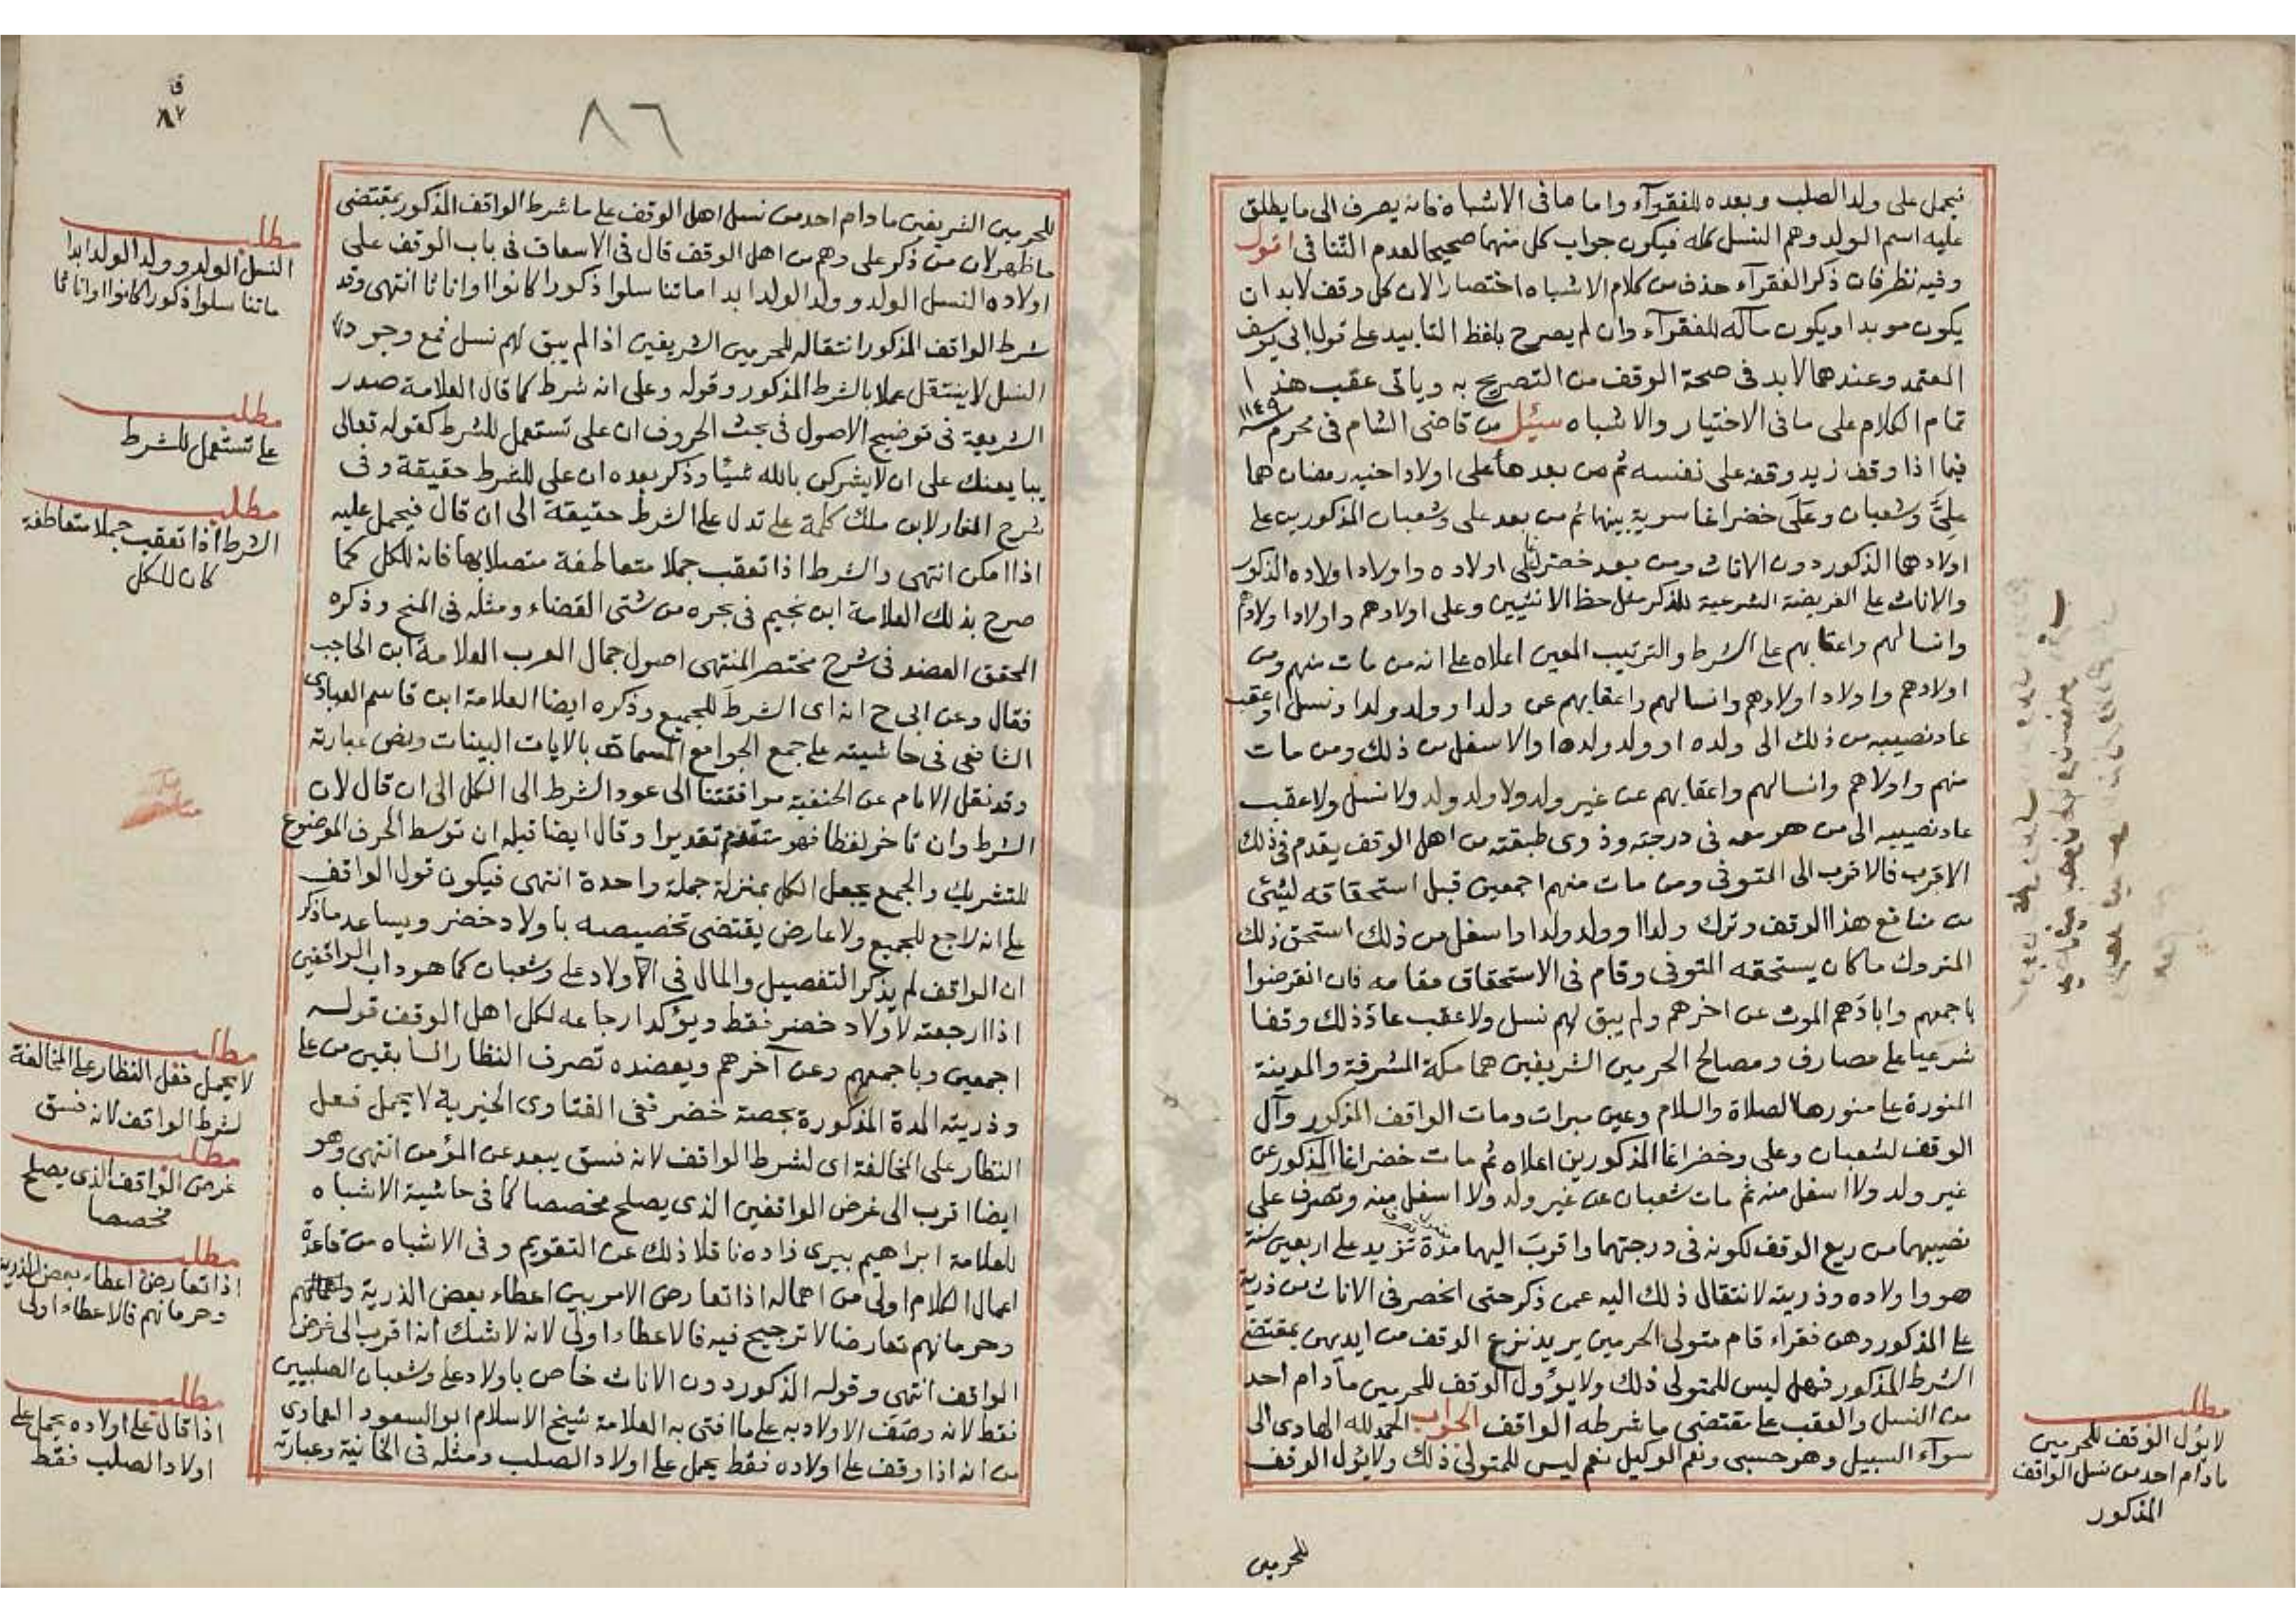 فيحمل على ولد الصلب وبعده للفقرآء واما ما فى الاشباه فانه يصرف الى ما يطلق
عليه اسم الولد وهم النسل كله فيكون جواب كل منهما صحيحا لعدم التنافى اقول
وفيه نظر فان ذكر الفقرآء حذف من كلام الاشباه اختصارا لان كل وقف لابد ان
يكون موبدا ويكون مآله للفقرآء وان لم يصرح بلفظ التابيد على قول ابى يوسف
المعتمد وعندهما لابد فى صحة الوقف من التصريح به وياتى عقب هذا
تمام الكلام على ما فى الاختيار والاشباه سئل من قاضى الشام فى محرم سنة ١١٤٩
فيما اذا وقف زيد وقفه على نفسه ثم من بعدها على اولاد اخيه رمضان هما
على وشعبان وعلى خضر اغا سوية بينهما ثم من بعد على وشعبان المذكورين على
اولادهما الذكور دون الاناث ومن بعد خضر على اولاده واولاد اولاده الذكور
والاناث على الفريضة الشرعية للذكر مثل حظ الانثيين وعلى اولادهم واولاد اولادهم
وانسالهم واعقابهم على الشرط والترتيب المعين اعلاه على انه من مات منهم ومن
اولادهم واولاد اولادهم وانسالهم واعقابهم عن ولد او ولد ولد او نسل او عقب
عاد نصيبه من ذلك الى ولده او ولد ولده او الاسفل من ذلك ومن مات
منهم واولاهم وانسالهم واعقابهم عن غير ولد ولا ولد ولد ولا نسل ولا عقب
عاد نصيبه الى من هو معه فى درجته وذوى طبقته من اهل الوقف يقدم فى ذلك
الاقرب فالاقرب الى المتوفى ومن مات منهم اجمعين قبل استحقاقه لشئ
من منافع هذا الوقف وترك ولدا او ولد ولد او اسفل من ذلك استحق ذلك
المتروك ما كان يستحقه المتوفى وقام فى الاستحقاق مقامه فان انقرضوا
باجمعهم وابادهم الموت عن اخرهم ولم يبق لهم نسل ولا عقب عاد ذلك وقفا
شرعيا على مصارف ومصالح الحرمين الشريفين هما مكة المشرفة والمدينة
المنورة على منورها الصلاة والسلام وعين مبرات ومات الواقف المذكور وآل
الوقف لشعبان وعلى وخضر اغا المذكورين اعلاه ثم مات خضر اغا المذكور عن
غير ولد ولا اسفل منه ثم مات شعبان عن غير ولد ولا اسفل منه وتصرف على
نصيبهما من ريع الوقف لكونه فى درجتهما واقرب اليهما مدة تزيد على اربعين سنة
هو واولاده وذريته لانتقال ذلك اليه عمن ذكر حتى انحصر فى الاناث من ذرية
على المذكور وهن فقراء قام متولى الحرمين يريد نزع الوقف من ايديهن بمقتضى
الشرط المذكور فهل ليس للمتولى ذلك ولا يؤول الوقف للحرمين مادام احد
من النسل والعقب على مقتضى ما شرطه الواقف الجواب الحمد لله الهادى الى
سوآء السبيل وهو حسبى ونعم الوكيل نعم ليس للمتولى ذلك ولا يؤل الوقف
للحرمين
مطلب
لا يؤل الوقف للحرمين
مادام احد من نسل الواقف
المذكور
٨٦
ق
٨٧
للحرمين الشريفين مادام احد من نسل اهل الوقف على ما شرط الواقف المذكور بمقتضى
ما ظهر لان من ذكر على وهم من اهل الوقف قال فى الاسعاف فى باب الوقف على
اولاده النسل الولد وولد الولد ابدا ما تناسلوا ذكورا كانوا او اناثا انتهى وقد
شرط الواقف المذكور انتقاله للحرمين الشريفين اذا لم يبق لهم نسل فمع وجود
النسل لا ينتقل عملا بالشرط المذكور وقوله وعلى انه شرط كما قال العلامة صدر
الشريعة فى توضيح الاصول فى بحث الحروف ان على تستعمل للشرط كقوله تعالى
يبايعنك على ان لا يشركن بالله شيئا وذكر بعده ان على للشرط حقيقة وفى
شرح المنار لابن ملك كلمة على تدل على الشرط حقيقة الى ان قال فيحمل عليه
اذا امكن انتهى والشرط اذا تعقب جملا متعاطفة متصلا بها فانه للكل كما
صرح بذلك العلامة ابن نجيم فى بحره من شتى القضاء ومثله فى المنح وذكره
المحقق العضد فى شرح مختصر المنتهى اصول جمال العرب العلامة ابن الحاجب
فقال وعن ابى ح انه اى الشرط للجميع وذكره ايضا العلامة ابن قاسم العبادى
الشافعى فى حاشيته على جمع الجوامع المسماة بالايات البينات ونص عبارته
وقد نقل الامام عن الحنفية موافقتنا الى عود الشرط الى الكل الى ان قال لان
الشرط وان تاخر لفظا فهو متقدم تقديرا وقال ايضا قبله ان توسط الحرف الموضوع
للتشريك والجمع يجعل الكل بمنزلة جملة واحدة انتهى فيكون قول الواقف
على انه راجع للجميع ولا عارض يقتضى تخصيصه باولاد خضر ويساعد ما ذكر
ان الواقف لم يذكر التفصيل والمال فى الاولاد على وشعبان كما هو داب الواقفين
اذا ارجعته لاولاد خضر فقط ويؤكد ارجاعه لكل اهل الوقف قوله
اجمعين وباجمعهم وعن آخرهم ويعضده تصرف النظار السابقين من على
وذريته المدة المذكورة بحصة خضر ففى الفتاوى الخيرية لا يحمل فعل
النظار على المخالفة اى لشرط الواقف لانه فسق يبعد عن المؤمن انتهى وهو
ايضا اقرب الى غرض الواقفين الذى يصلح مخصصا كما فى حاشية الاشباه
للعلامة ابراهيم بيرى زاده ناقلا ذلك عن التقويم وفى الاشباه من قاعدة
اعمال الكلام اولى من اهماله اذا تعارض الامر بين اعطاء بعض الذرية
وحرمانهم تعارضا لا ترجيح فيه فالاعطاء اولى لانه لا شك انه اقرب الى غرض
الواقف انتهى وقوله الذكور دون الاناث خاص باولاد على وشعبان الصلبيين
فقط لانه وصف الاولاد به على ما افتى به العلامة شيخ الاسلام ابو السعود العمادى
من انه اذا وقف على اولاده فقط يحمل على اولاد الصلب ومثله فى الخانية وعبارته
مطلب
النسل الولد وولد الولد ابدا
ما تناسلوا ذكورا كانوا او اناثا
مطلب
على تستعمل للشرط
مطلب
الشرط اذا تعقب جملا متعاطفة
كان للكل
مطلب
لا يحمل فعل النظار على المخالفة
لشرط الواقف لانه فسق
مطلب
غرض الواقف الذى يصلح
مخصصا
مطلب
اذا تعارض اعطاء بعض الذرية
وحرمانهم فالاعطاء اولى
مطلب
اذا قال على اولاده يحمل على
اولاد الصلب فقط